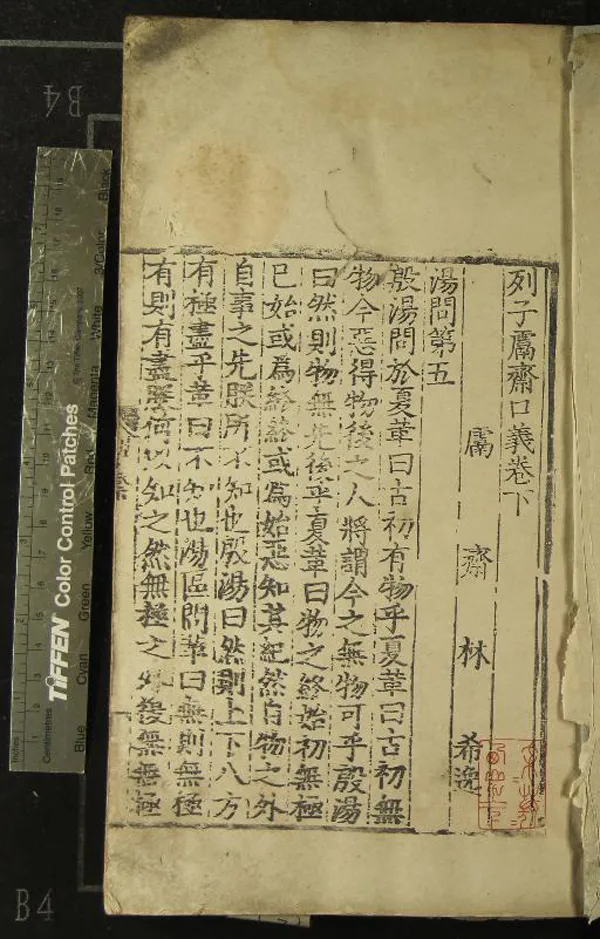 列子鬳齋口義卷下
鬳齋林希逸
湯問第五
殷湯問於夏革曰古初有物乎夏革曰古初無
物今惡得物後之人將謂今之無物可乎殷湯
曰然則物無先後乎夏革曰物之終始初無極
已始或爲終終或爲始惡知其紀然自物之外
自事之先朕所不知也殷湯曰然則上下八方
有極盡乎革曰不知也湯固問革曰無則無極
有則有盡朕何以知之然無極之外復無無極
B4
B4
TIFFEN Color Control Patches
© The Tiffen Company, 2007
Inches
Centimetres
Blue
Cyan
Green
Yellow
Red
Magenta
White
3/Color
Black